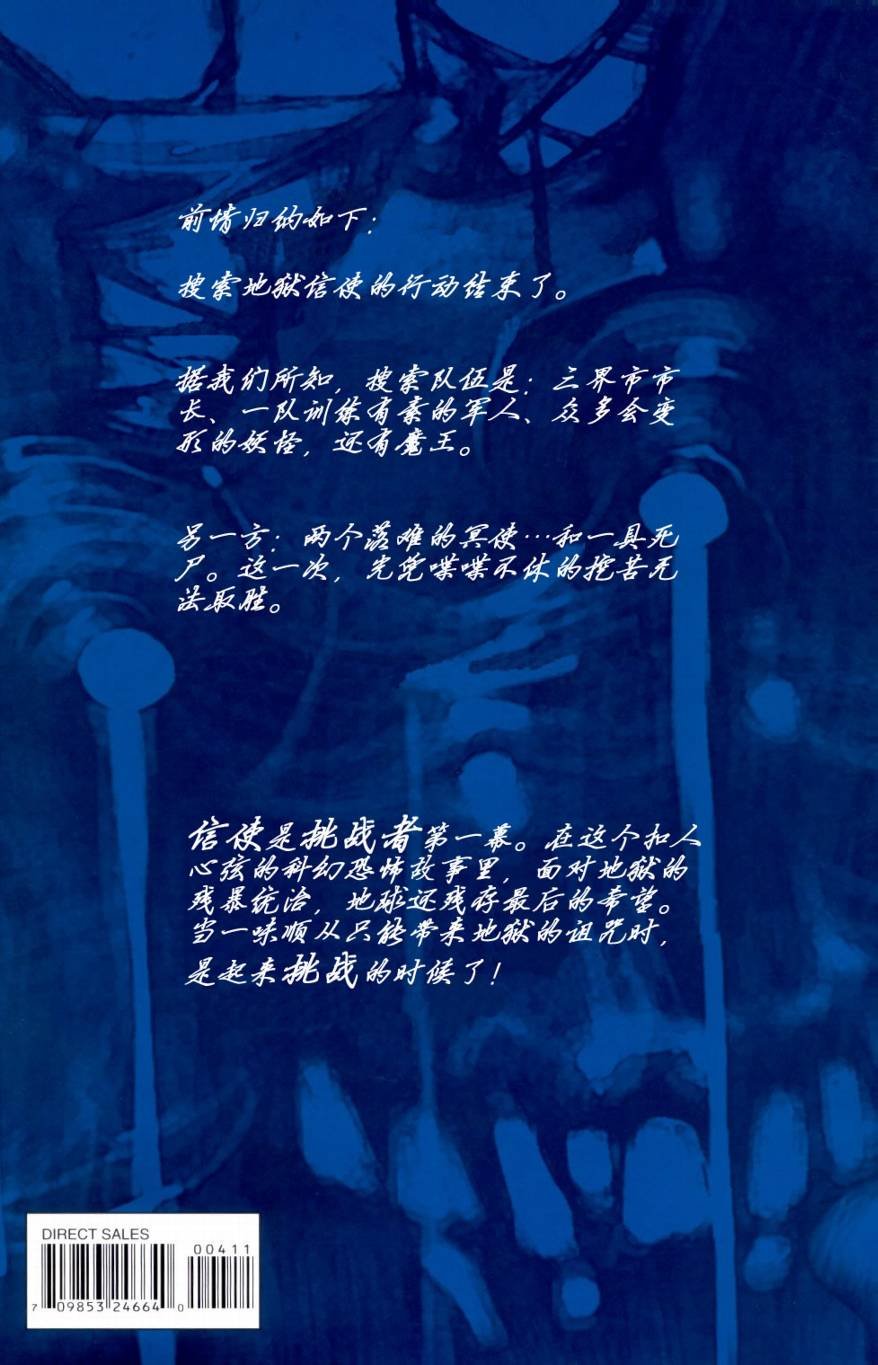 前情归纳如下：
搜索地狱信使的行动结束了。
据我们所知，搜索队伍是：三界市市
长、一队训练有素的军人、众多会变
形的妖怪，还有魔王。
另一方：两个落难的冥使…和一具死
尸。这一次，光凭喋喋不休的挖苦无
法取胜。
信使是挑战者第一幕。在这个扣人
心弦的科幻恐怖故事里，面对地狱的
残暴统治，地球还残存最后的希望。
当一味顺从只能带来地狱的诅咒时，
是起来挑战的时候了！
DIRECT SALES
00411
7 09853 24664 0